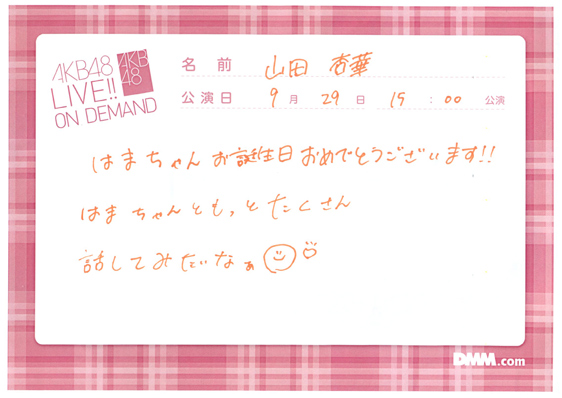 AKB48
LIVE!!
ON DEMAND
AKB
48
名前 山田 杏華
公演日 9月 29日 19:00 公演
はまちゃん お誕生日おめでとうございます!!
はまちゃんともっとたくさん
話してみたいなぁ
DMM.com